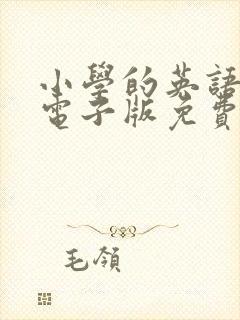 小學的英語
電子版免費
毛領